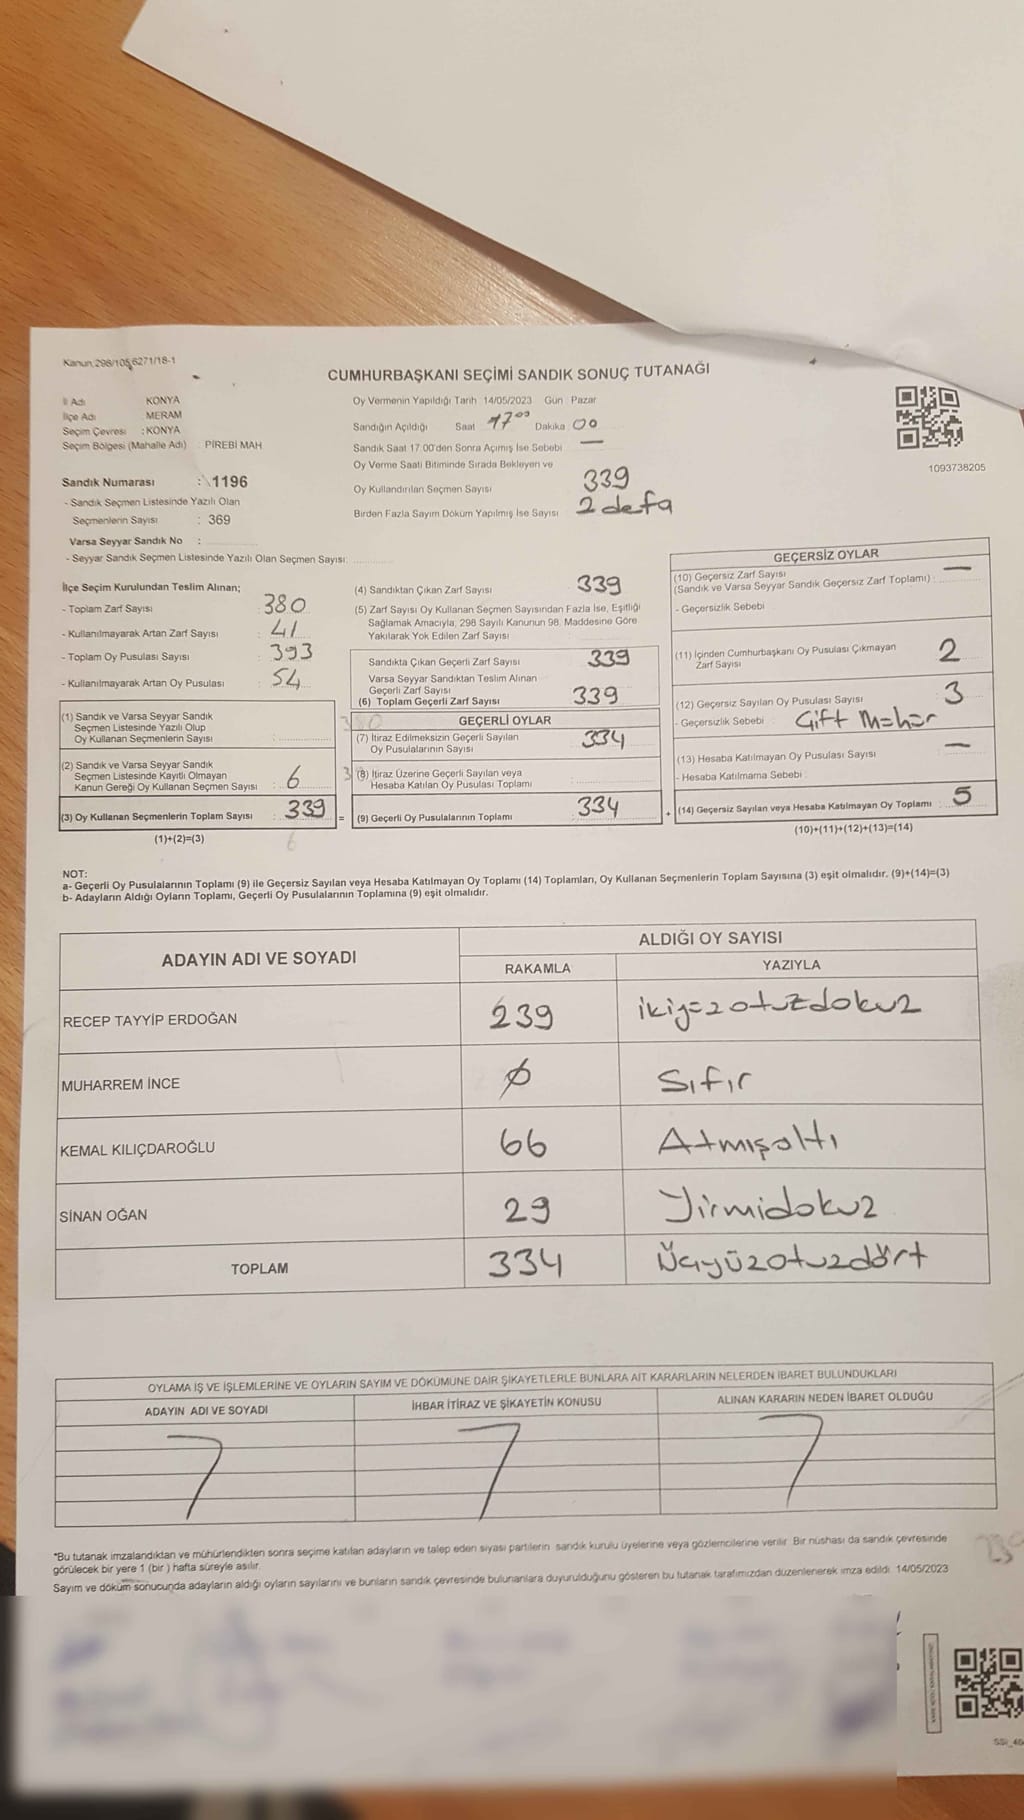 Kanun,298/105,6271/18-1
CUMHURBAŞKANI SEÇİMİ SANDIK SONUÇ TUTANAĞI
İl Adı KONYA
İlçe Adı MERAM
Seçim Çevresi : KONYA
Seçim Bölgesi (Mahalle Adı) : PİREBİ MAH
Sandık Numarası : 1196
- Sandık Seçmen Listesinde Yazılı Olan
Seçmenlerin Sayısı : 369
Varsa Seyyar Sandık No :
- Seyyar Sandık Seçmen Listesinde Yazılı Olan Seçmen Sayısı:
Oy Vermenin Yapıldığı Tarih 14/05/2023 Gün Pazar
Sandığın Açıldığı Saat 17⁰⁰ Dakika 00
Sandık Saat 17.00'den Sonra Açımış İse Sebebi —
Oy Verme Saati Bitiminde Sırada Bekleyen ve
Oy Kullandırılan Seçmen Sayısı 339
Birden Fazla Sayım Döküm Yapılmış İse Sayısı 2 defa
1093738205
İlçe Seçim Kurulundan Teslim Alınan;
- Toplam Zarf Sayısı : 380
- Kullanılmayarak Artan Zarf Sayısı : 41
- Toplam Oy Pusulası Sayısı : 393
- Kullanılmayarak Artan Oy Pusulası : 54
(1) Sandık ve Varsa Seyyar Sandık
Seçmen Listesinde Yazılı Olup
Oy Kullanan Seçmenlerin Sayısı :
(2) Sandık ve Varsa Seyyar Sandık
Seçmen Listesinde Kayıtlı Olmayan
Kanun Gereği Oy Kullanan Seçmen Sayısı : 6
(3) Oy Kullanan Seçmenlerin Toplam Sayısı : 339 =
(1)+(2)=(3)
(4) Sandıktan Çıkan Zarf Sayısı 339
(5) Zarf Sayısı Oy Kullanan Seçmen Sayısından Fazla İse, Eşitliği
Sağlamak Amacıyla, 298 Sayılı Kanunun 98. Maddesine Göre
Yakılarak Yok Edilen Zarf Sayısı
Sandıkta Çıkan Geçerli Zarf Sayısı 339
Varsa Seyyar Sandıktan Teslim Alınan
Geçerli Zarf Sayısı
(6) Toplam Geçerli Zarf Sayısı 339
GEÇERLİ OYLAR
(7) İtiraz Edilmeksizin Geçerli Sayılan
Oy Pusulalarının Sayısı 334
(8) İtiraz Üzerine Geçerli Sayılan veya
Hesaba Katılan Oy Pusulası Toplamı
(9) Geçerli Oy Pusulalarının Toplamı 334 +
GEÇERSİZ OYLAR
(10) Geçersiz Zarf Sayısı —
(Sandık ve Varsa Seyyar Sandık Geçersiz Zarf Toplamı) :
- Geçersizlik Sebebi
(11) İçinden Cumhurbaşkanı Oy Pusulası Çıkmayan
Zarf Sayısı 2
(12) Geçersiz Sayılan Oy Pusulası Sayısı 3
- Geçersizlik Sebebi : Çift Mühür
(13) Hesaba Katılmayan Oy Pusulası Sayısı —
- Hesaba Katılmama Sebebi :
(14) Geçersiz Sayılan veya Hesaba Katılmayan Oy Toplamı : 5
(10)+(11)+(12)+(13)=(14)
NOT:
a- Geçerli Oy Pusulalarının Toplamı (9) ile Geçersiz Sayılan veya Hesaba Katılmayan Oy Toplamı (14) Toplamları, Oy Kullanan Seçmenlerin Toplam Sayısına (3) eşit olmalıdır. (9)+(14)=(3)
b- Adayların Aldığı Oyların Toplamı, Geçerli Oy Pusulalarının Toplamına (9) eşit olmalıdır.
ADAYIN ADI VE SOYADI ALDIĞI OY SAYISI
RAKAMLA YAZIYLA
RECEP TAYYİP ERDOĞAN 239 ikiyüzotuzdokuz
MUHARREM İNCE 0 Sıfır
KEMAL KILIÇDAROĞLU 66 Atmışaltı
SİNAN OĞAN 29 Yirmidokuz
TOPLAM 334 Üçyüzotuzdört
OYLAMA İŞ VE İŞLEMLERİNE VE OYLARIN SAYIM VE DÖKÜMÜNE DAİR ŞİKAYETLERLE BUNLARA AİT KARARLARIN NELERDEN İBARET BULUNDUKLARI
ADAYIN ADI VE SOYADI İHBAR İTİRAZ VE ŞİKAYETİN KONUSU ALINAN KARARIN NEDEN İBARET OLDUĞU
*Bu tutanak imzalandıktan ve mühürlendikten sonra seçime katılan adayların ve talep eden siyasi partilerin sandık kurulu üyelerine veya gözlemcilerine verilir. Bir nüshası da sandık çevresinde
görülecek bir yere 1 (bir ) hafta süreyle asılır.
Sayım ve döküm sonucunda adayların aldığı oyların sayılarını ve bunların sandık çevresinde bulunanlara duyurulduğunu gösteren bu tutanak tarafımızdan düzenlenerek imza edildi. 14/05/2023